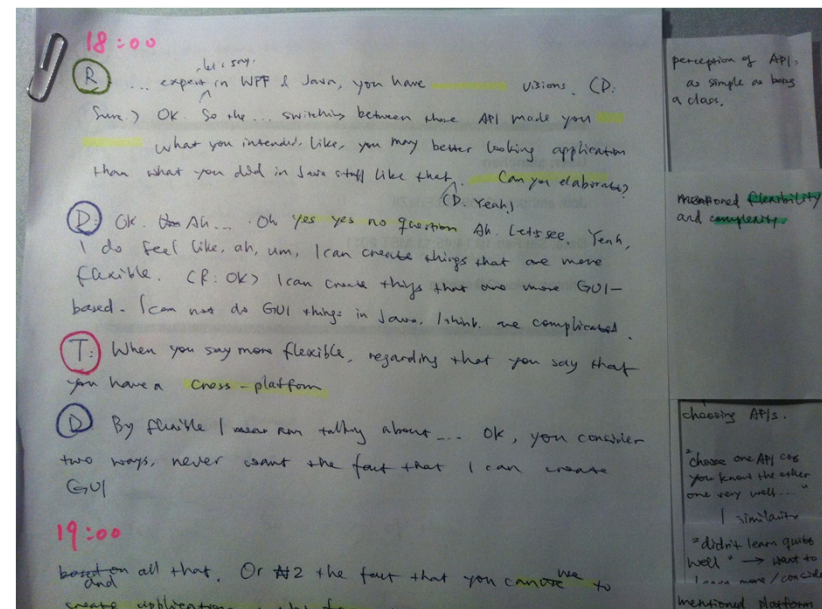 18:00
let's say,
R ... expert in WPF & Java, you have visions. (D.
Sure.) OK. So the... switching between those API made you
what you intended. Like, you may better looking application
than what you did in Java stuff like that. Can you elaborate?
(D. Yeah)
D: OK. Um Ah... Oh yes yes no question Ah. Let's see. Yeah,
I do feel like, ah, um, I can create things that are more
flexible. (R: OK) I can create things that are more GUI-
based. I can not do GUI things in Java, I think. are complicated.
T: When you say more flexible, regarding that you say that
you have a cross-platform
D By flexible I mean am talking about ... OK, you consider
two ways, never want the fact that I can create
GUI
19:00
based on all that. Or #2 the fact that you can use to
and
create applications
perception of API,
as simple as being
a class.
mentioned flexibility
and complexity.
choosing APIs.
"choose one API cos
you know the other
one very well..."
similarity
"didn't learn quite
well" → want to
learn more / consider
mentioned platform